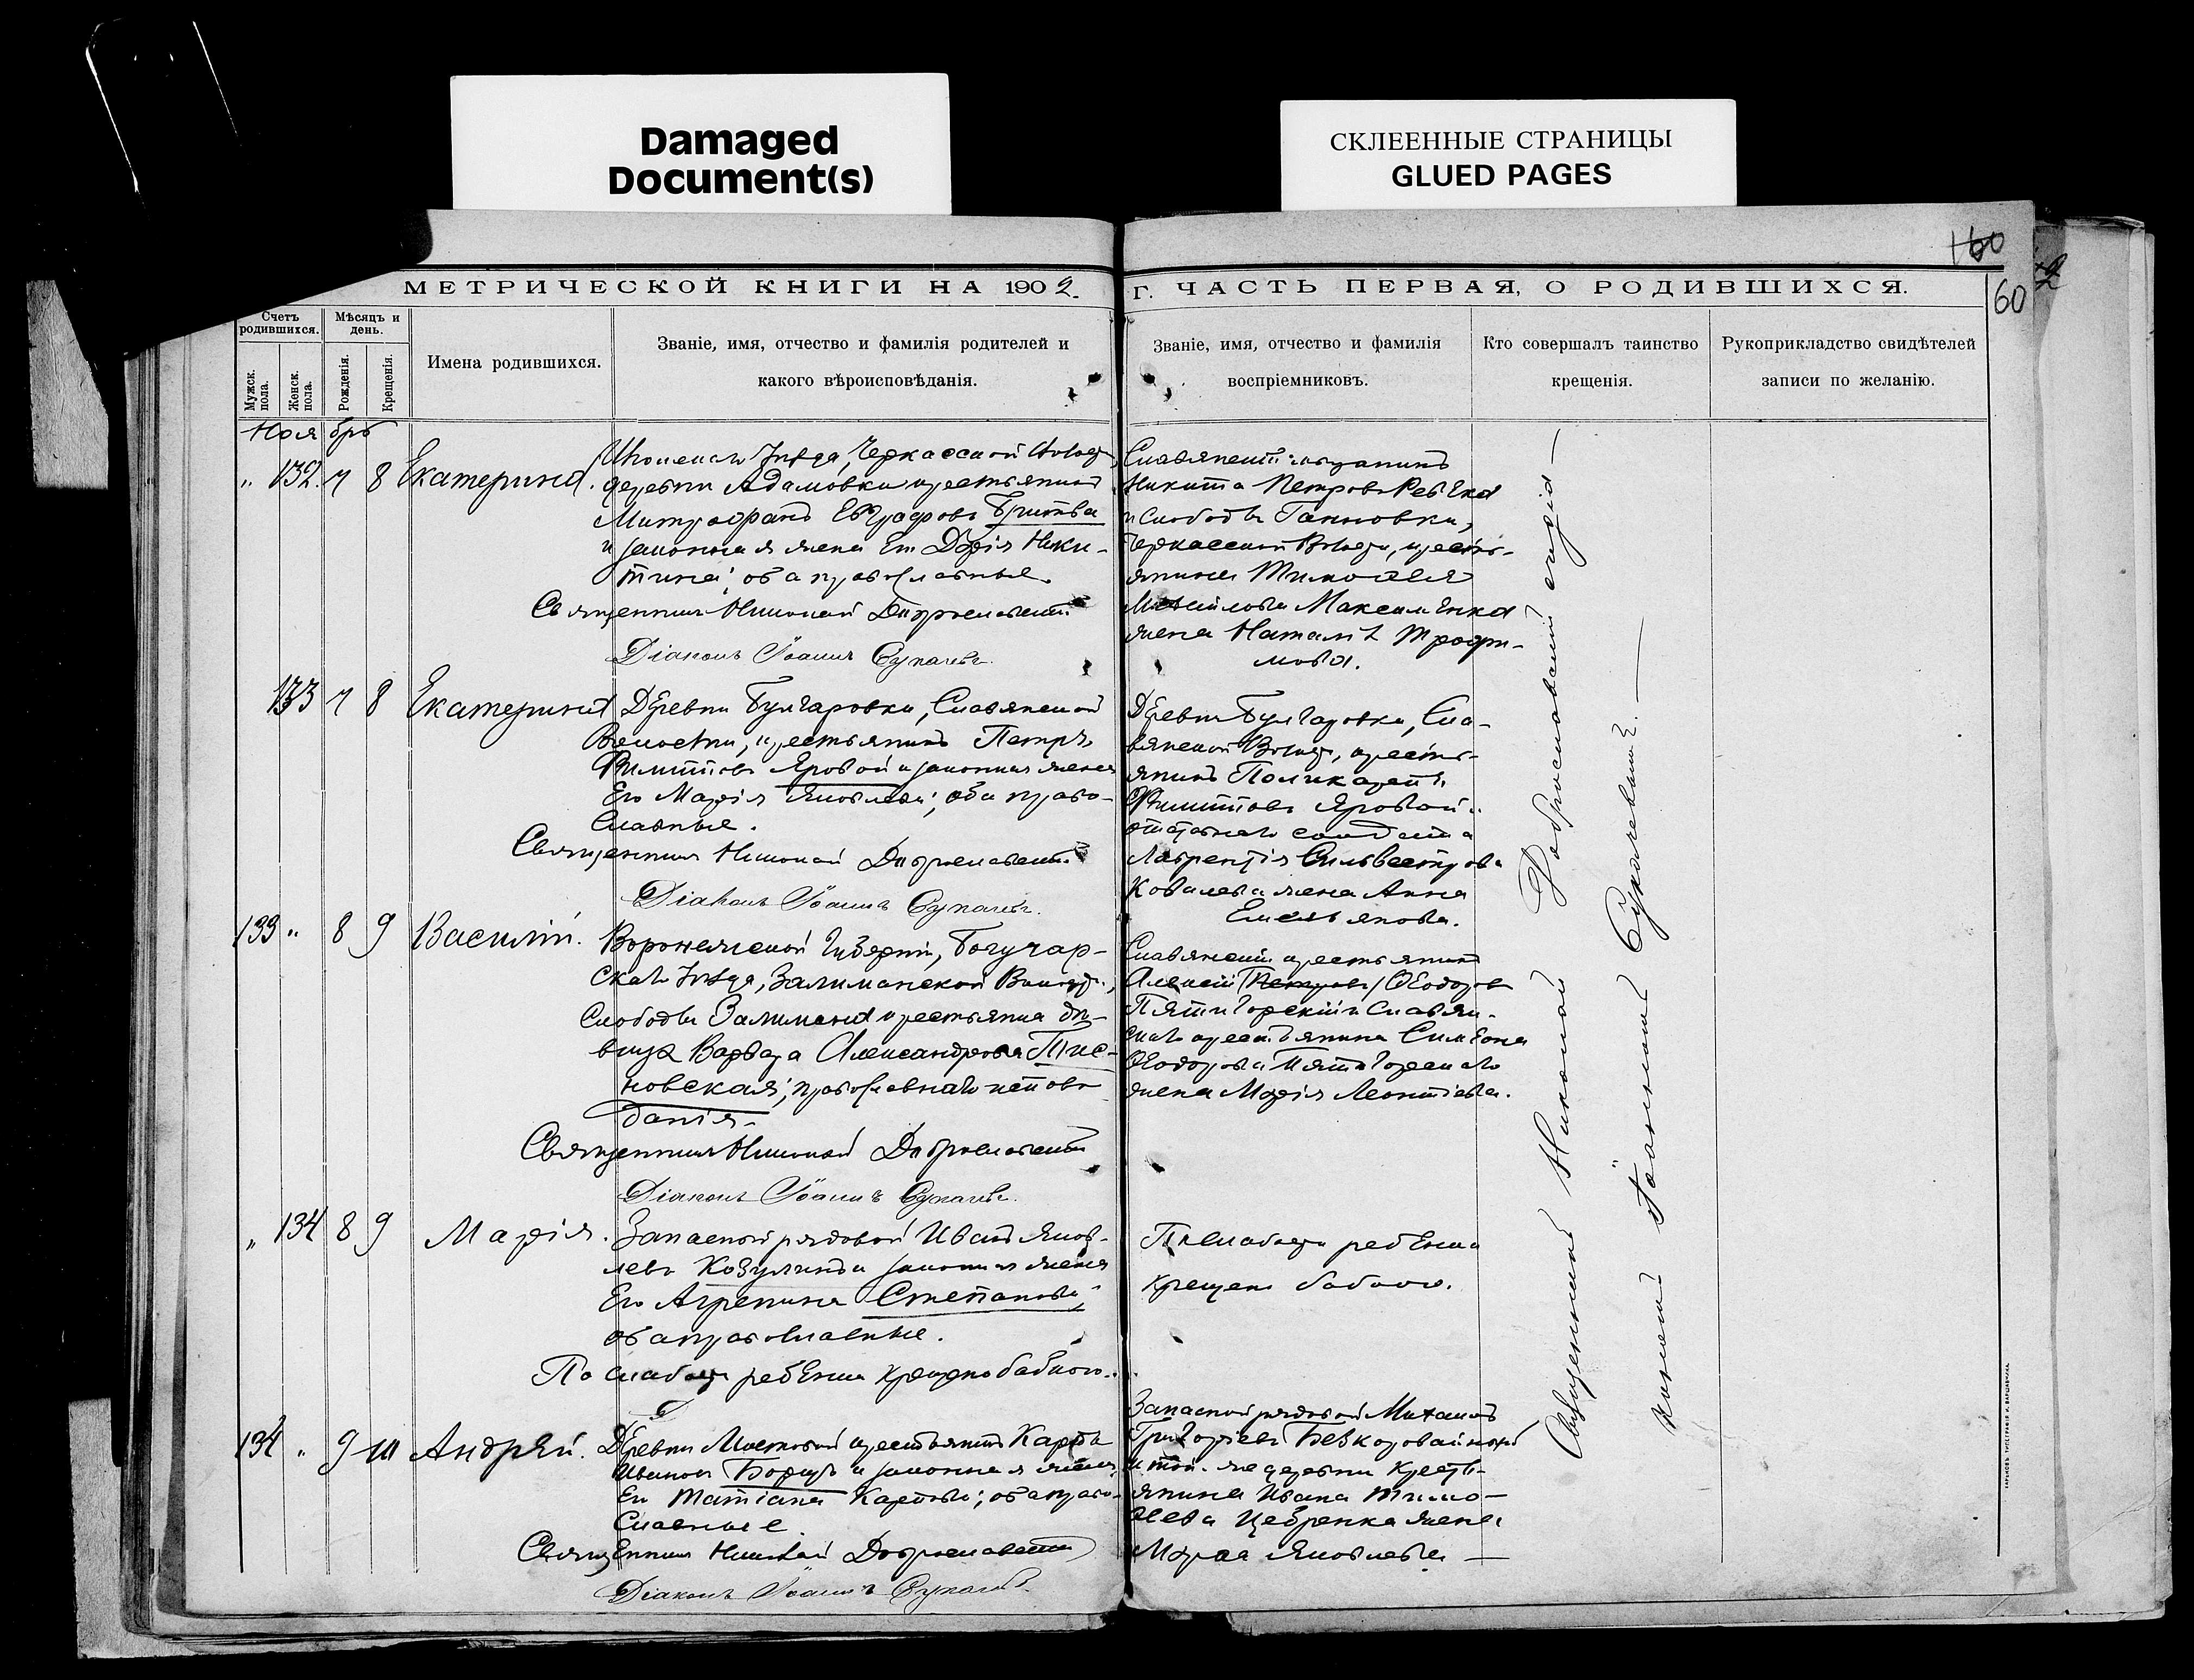 Damaged
Document(s)
СКЛЕЕННЫЕ СТРАНИЦЫ
GLUED PAGES
160
60
МЕТРИЧЕСКОЙ КНИГИ НА 1902
Г. ЧАСТЬ ПЕРВАЯ, О РОДИВШИХСЯ.
Счетъ родившихся.
Мѣсяцъ и день.
Мужск. пола.
Женск. пола.
Рожденія.
Крещенія.
Имена родившихся.
Званіе, имя, отчество и фамилія родителей и
какого вѣроисповѣданія.
Званіе, имя, отчество и фамилія
воспріемниковъ.
Кто совершалъ таинство
крещенія.
Рукоприкладство свидѣтелей
записи по желанію.
Ноябрь
" 132. 7 8 Екатерина.
Уѣзда, Черкасской
деревни Адамовки крестьянинъ
Митрофанъ Евграфовъ Бритва
и законная жена его Дарія Ники-
тина; оба православные.
Священникъ Николай Доброславскій
Діаконъ Іоаннъ Сукачевъ.
Славянскій мѣщанинъ
Никита Петровъ
и слободы Ганновки,
Черкасской Волости, кресть-
янина Тимоѳея
Михайлова Максименка
жена Наталія Трофи-
мова.
133 7 8 Екатерина
Деревни Булгаровки, Славянской
Волости, крестьянинъ Петръ
Филипповъ Яровой и законная жена
его Марія Яковлева; оба право-
славные.
Священникъ Николай Доброславскій
Діаконъ Іоаннъ Сукачевъ.
Деревни Булгаровки, Сла-
вянской Волости, кресть-
янинъ Поликарпъ
Филипповъ Яровой и
отставнаго солдата
Лаврентія Сильвестрова
Ковалева жена Анна
Емельянова.
133 " 8 9 Василій.
Воронежской Губерніи, Богучар-
скаго Уѣзда, Залиманской Волости,
Слободы Залимана крестьянка дѣ-
вица Варвара Александрова
новская; православнаго исповѣ-
данія.
Священникъ Николай Доброславскій
Діаконъ Іоаннъ Сукачевъ.
Славянскій крестьянинъ
Алексѣй Петровъ / Ѳеодоровъ
Пятигорскій и Славян-
скаго крестьянина Симеона
Ѳеодорова Пятигорскаго
жена Марія Леонтіева.
" 134 8 9 Марія.
Запасной рядовой Иванъ Яков-
левъ Козулинъ и законная жена
его Агрепина Степанова;
оба православные.
По слабости ребенка крещено бабкою.
По слабости ребенка
крещено бабкою.
134 " 9 10 Андрей.
Деревни Мостовой крестьянинъ Карпъ
Ивановъ Борщъ и законная жена
его Татіана Карпова; оба право-
славные.
Священникъ Николай Доброславскій
Діаконъ Іоаннъ Сукачевъ.
Запасной рядовой Михаилъ
Григоріевъ Безкоровайный
и той-же деревни кресть-
янина Ивана Тимо-
ѳеева Цебренка жена
Марѳа Яковлева —
Священникъ Николай Доброславскій
Іоанномъ Сукачевымъ. —